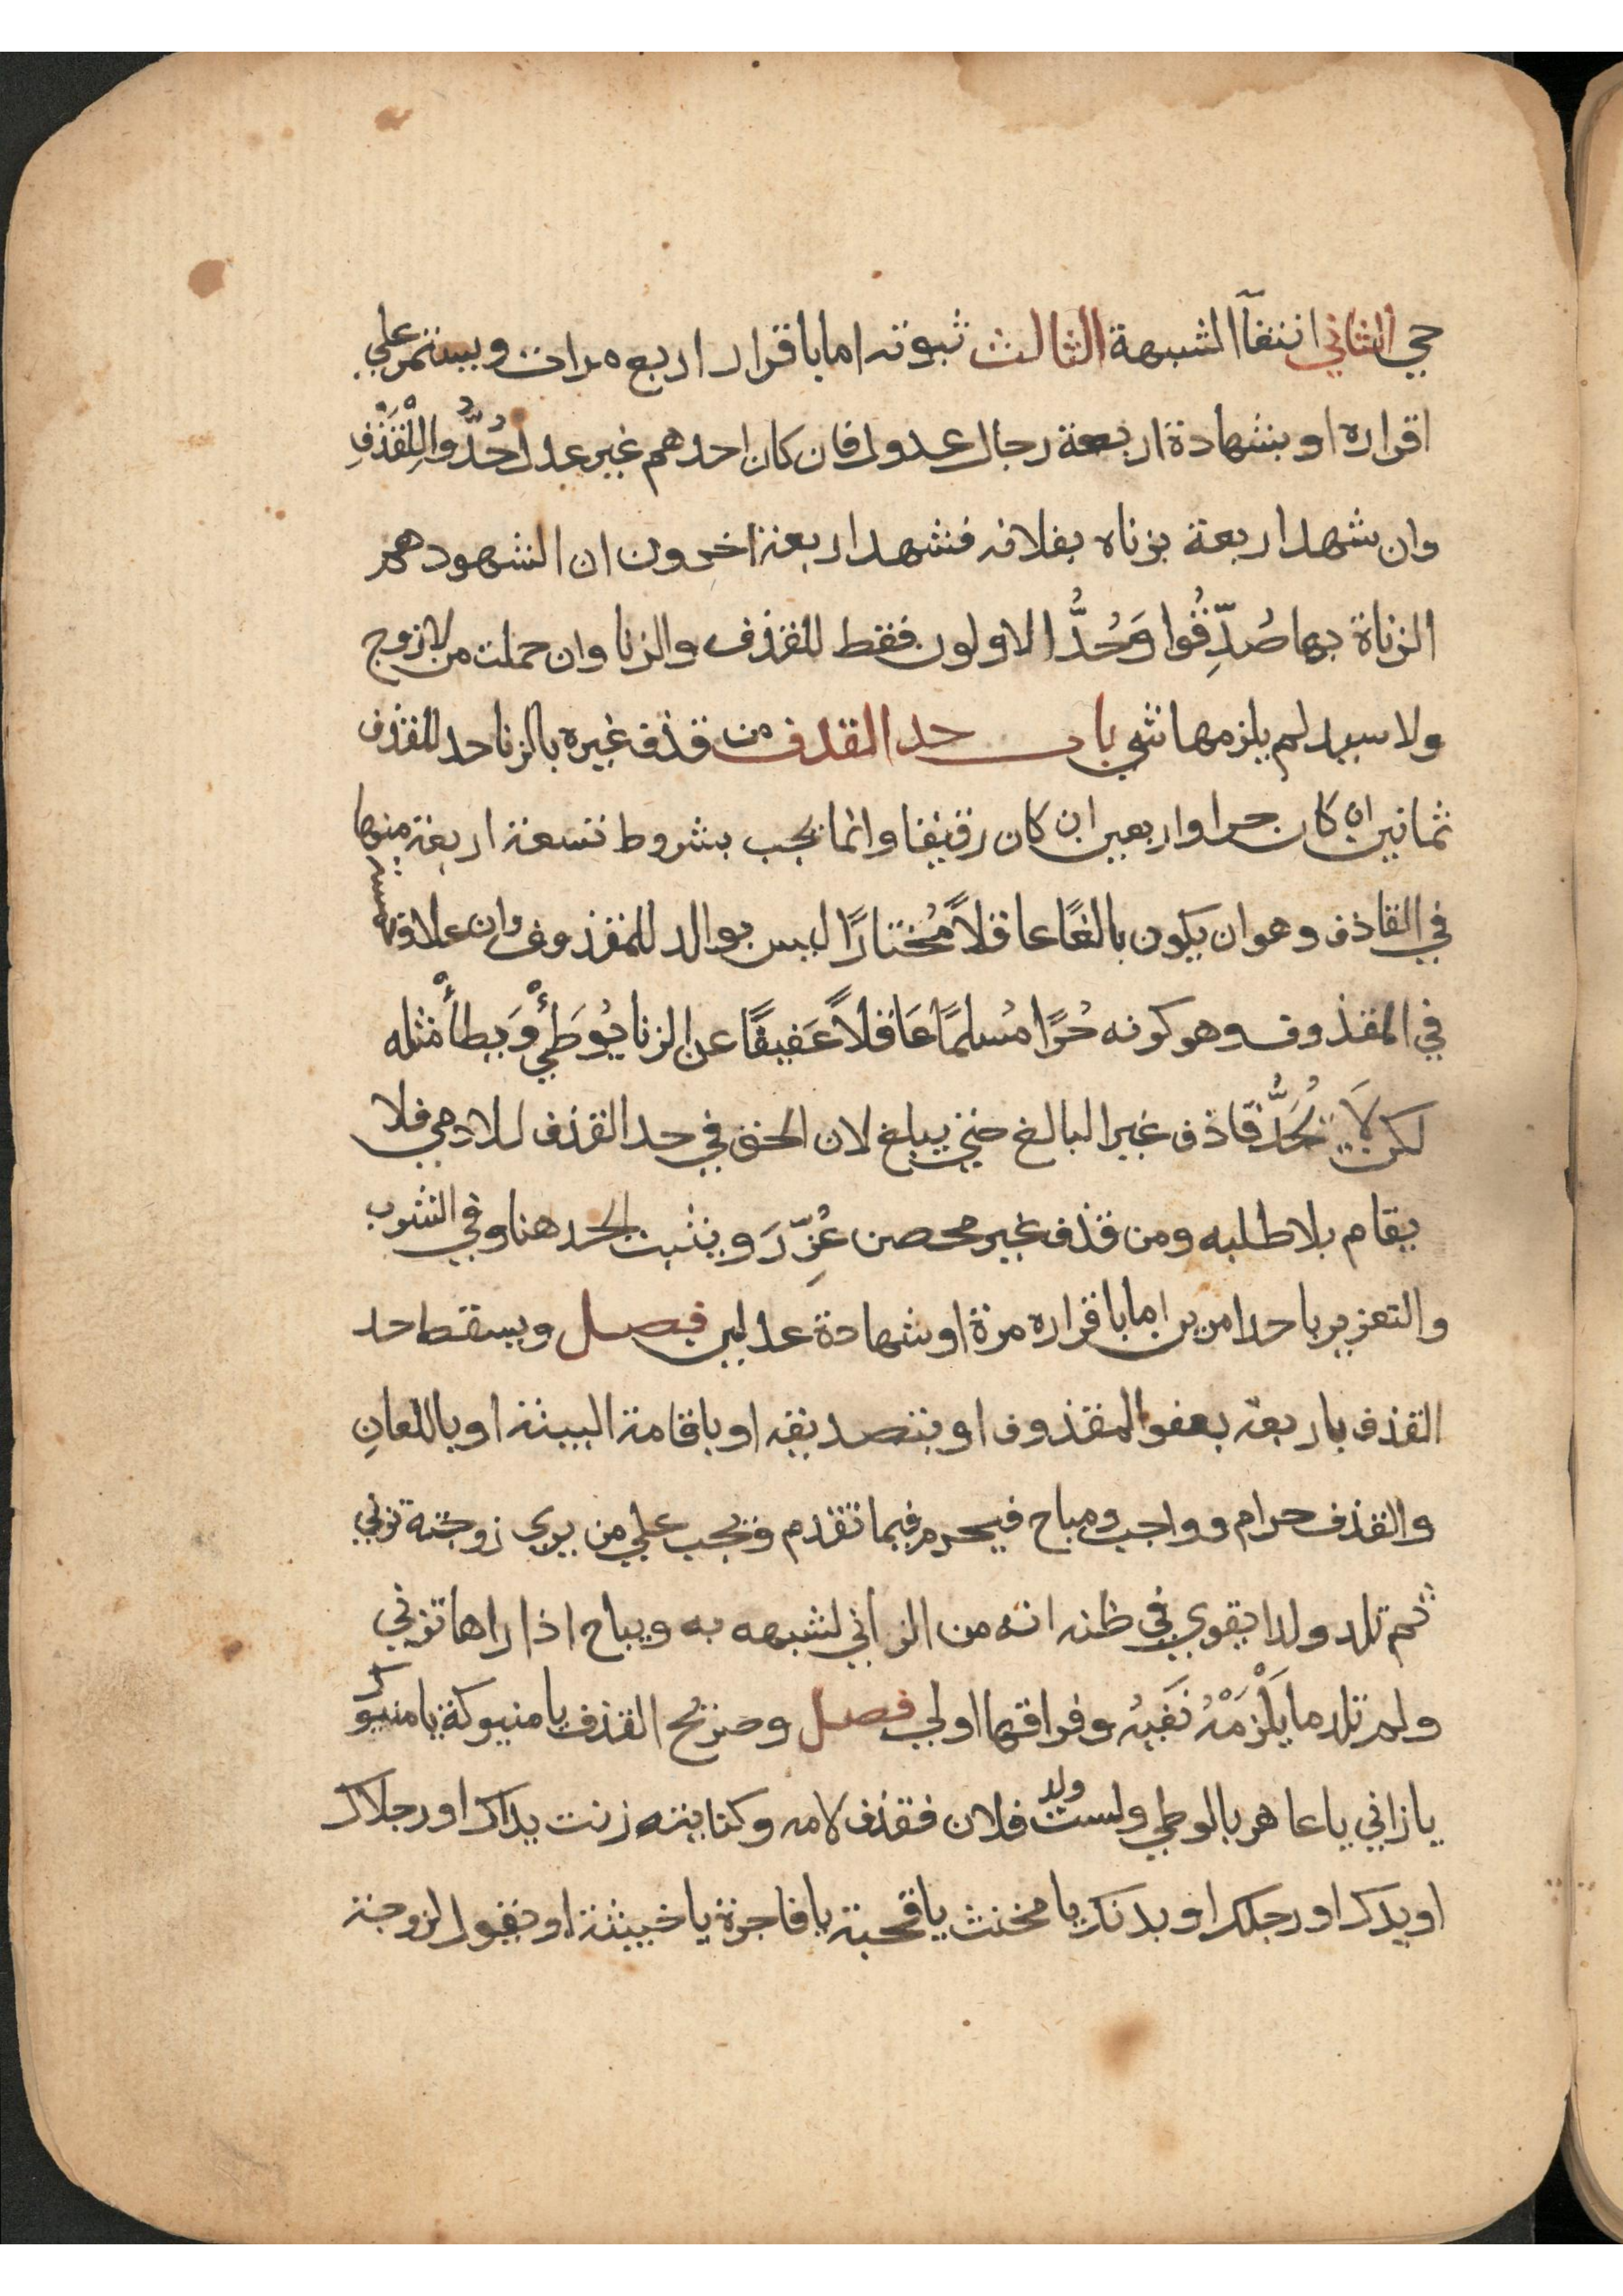 حي الثاني انتفآ الشبهة الثالث ثبوته اما باقرار اربع مرات ويستمر علي
اقراره او بشهادة اربعة رجال عدول فان كان احدهم غير عدل حُدُّوا لِلْقَذْفِ
وان شهد اربعة بزناه بفلانه فشهد اربعة اخرون ان الشهود هم
الزناة بها صُدِّقُوا وَحُدُّ الاولون فقط للقذف والزنا وان حملت من لا زوج
ولا سيد لم يلزمها شي باب حد القذف من قذف غيره بالزنا حد للقذف
ثمانين ان كان حرا واربعين ان كان رقيقا وانما يجب بشروط تسعة اربعة منها
في القاذف وهو ان يكون بالغًا عاقلاً مُختارًا ليس بوالد للمقذوف وان علا وخمسة
في المقذوف وهو كونه حُرًا مُسلمًا عَاقلاً عَفيفًا عن الزنا يُوطَيْ وَيطأْ مثله
لكن لاَ يُحَدُّ قاذف غير البالغ حتي يبلغ لان الحق في حد القذف للادمي فلا
يقام بلا طلبه ومن قذف غير محصن عُزِّرَ ويثبت الحد هنا وفي الشرب
والتعزير باحد امرين اما باقراره مرة او شهادة عدلين فصل ويسقط حد
القذف باربعة بعفو المقذوف او بتصديقه او باقامة البينة او باللعانِ
والقذف حرام وواجب ومباح فيحرم فيما تقدم ويجب علي من يري زوجته تزني
ثم تلد ولدا يقوي في ظنه انه من الزاني لشبهه به ويباح اذا راها تزني
ولم تلد ما يَلْزَمْهُ نَفيُه وفراقها اولي فصل وصريح القذف يا منيوكة يا منيوك
يا زاني يا عاهر يالوطي ولست ولد فلان فقذف لامه وكنايته زنت يداك او رجلاك
او يدك او رجلك او بدنك يا مخنث يا قحبة يا فاجرة يا خبيثة او يقول لزوجة